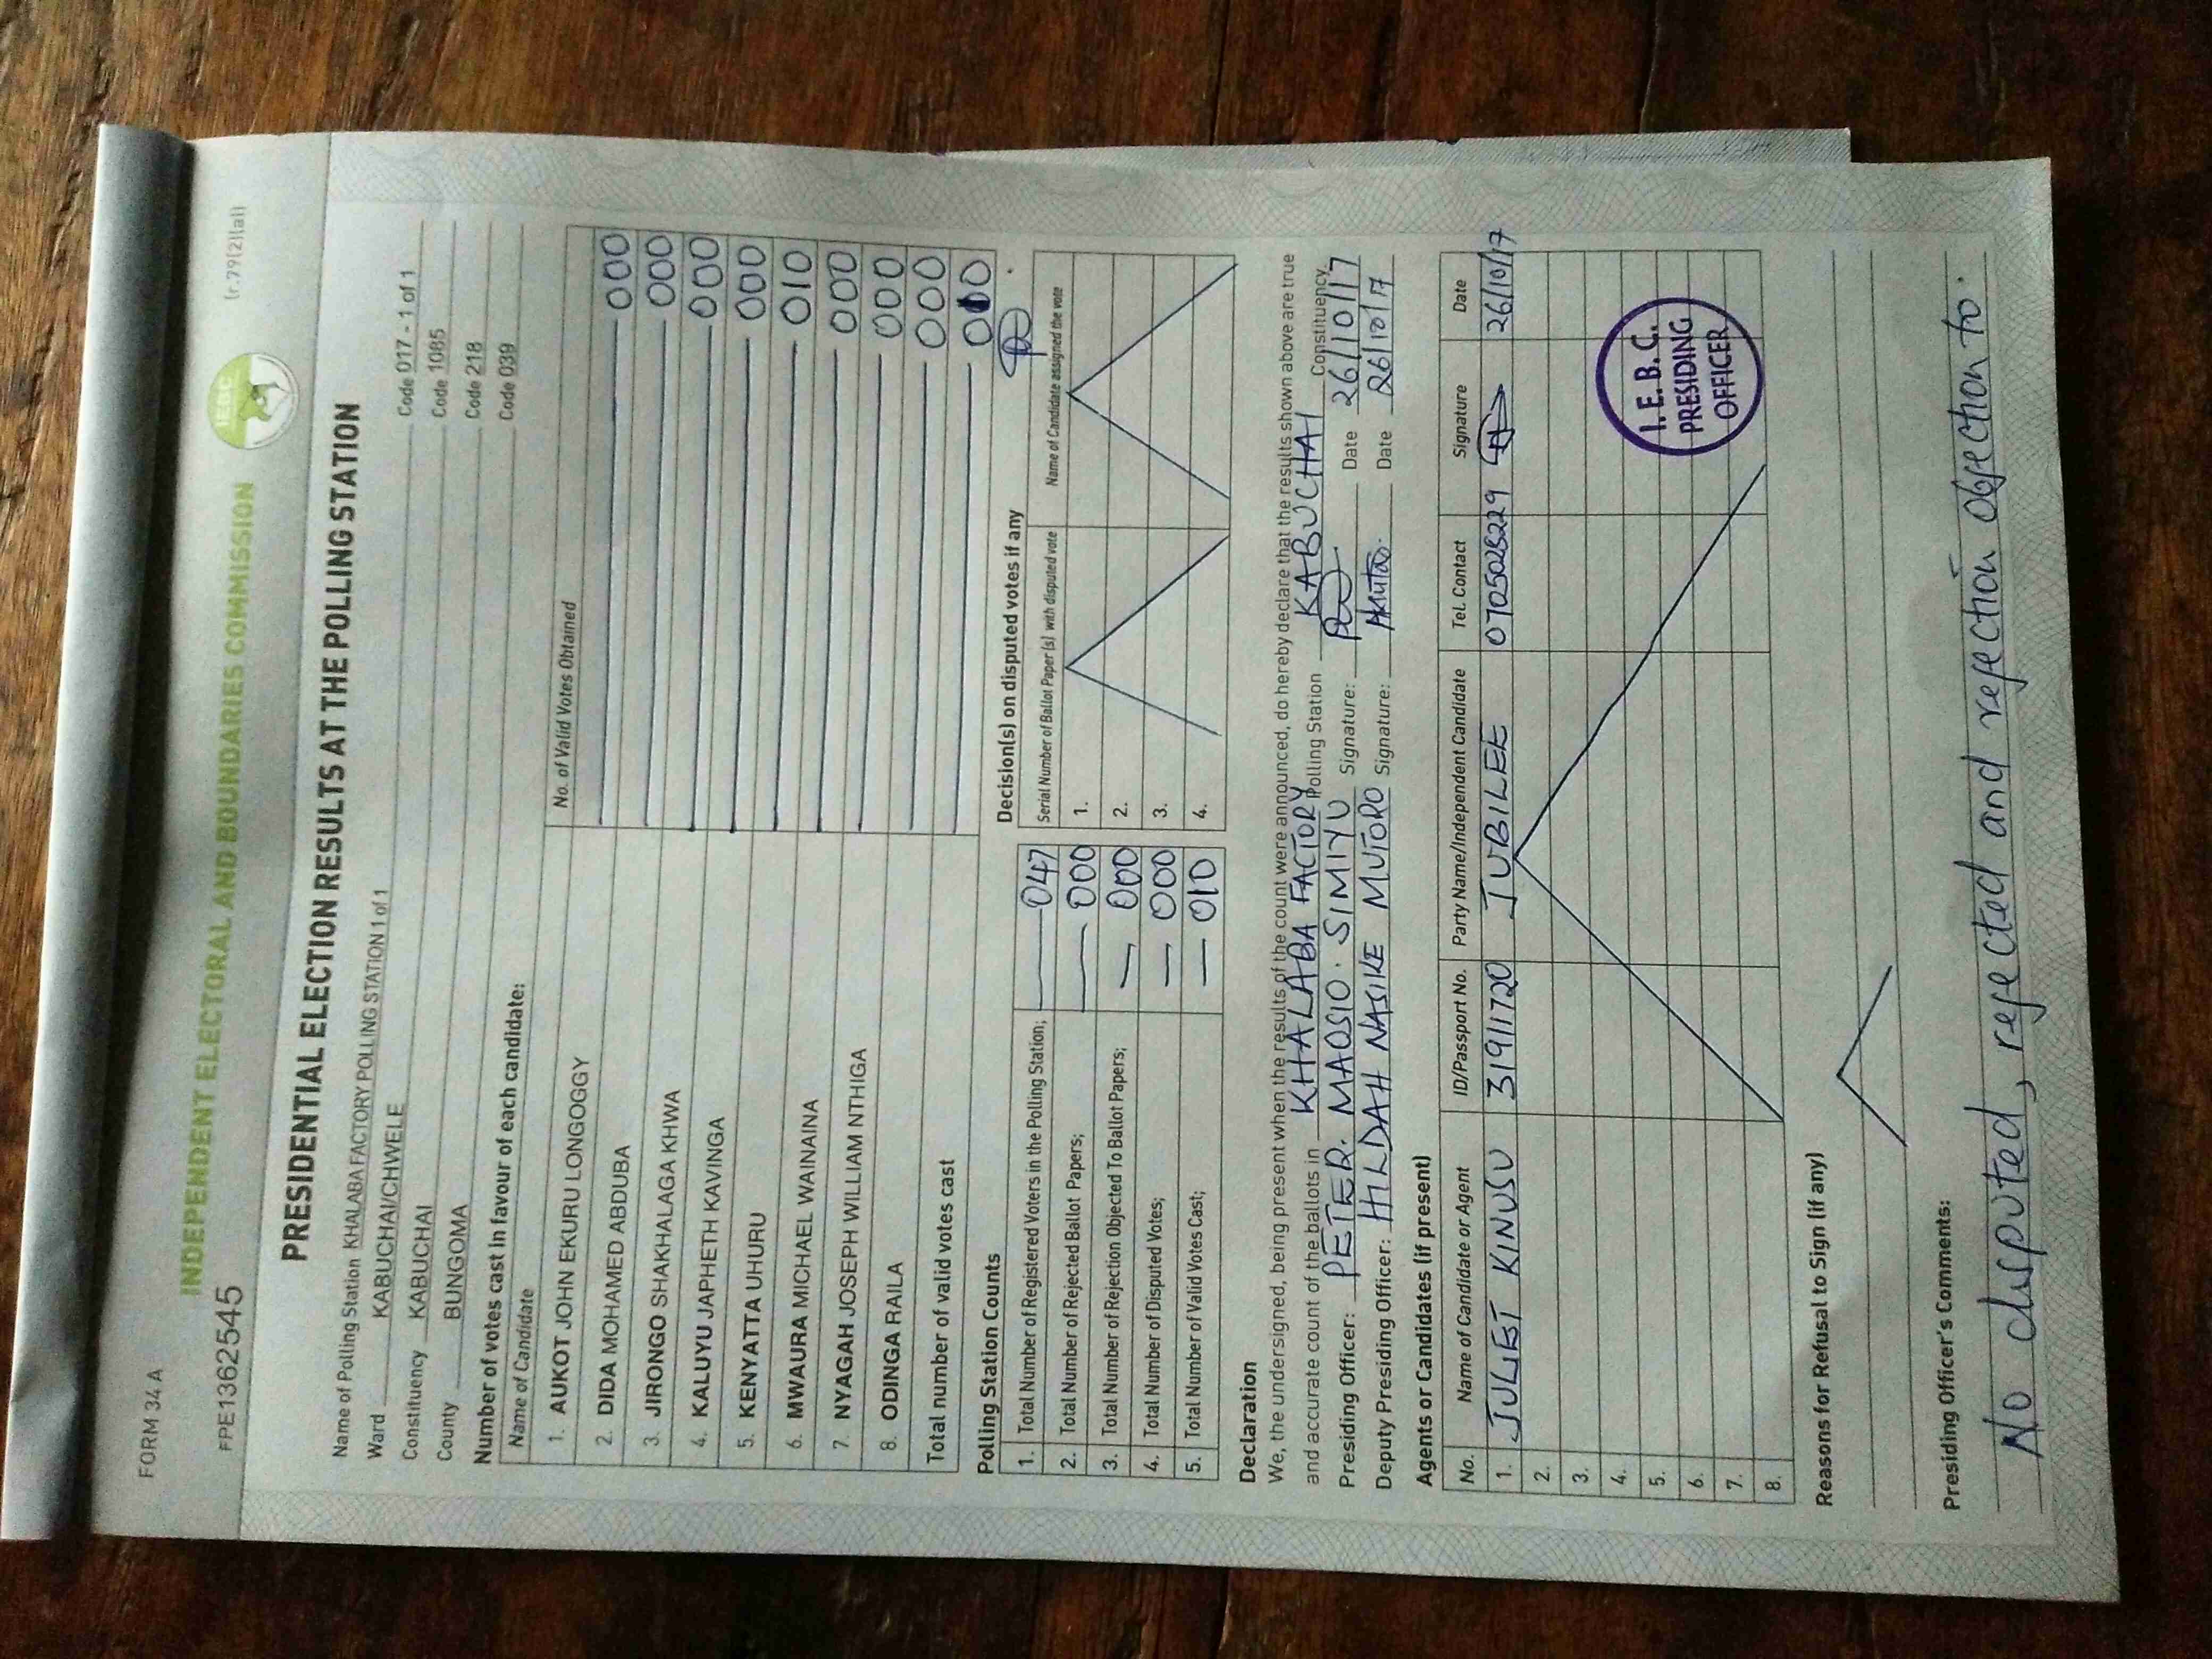 FORM 34 A
(r.79(2)(a))
INDEPENDENT ELECTORAL AND BOUNDARIES COMMISSION
IEBC
FPE1362545
PRESIDENTIAL ELECTION RESULTS AT THE POLLING STATION
Name of Polling Station KHALABA FACTORY POLLING STATION 1 of 1 Code 017 - 1 of 1
Ward KABUCHAI/CHWELE Code 1085
Constituency KABUCHAI Code 218
County BUNGOMA Code 039
Number of votes cast in favour of each candidate:
Name of Candidate No. of Valid Votes Obtained
1. AUKOT JOHN EKURU LONGOGGY 000
2. DIDA MOHAMED ABDUBA 000
3. JIRONGO SHAKHALAGA KHWA 000
4. KALUYU JAPHETH KAVINGA 000
5. KENYATTA UHURU 010
6. MWAURA MICHAEL WAINAINA 000
7. NYAGAH JOSEPH WILLIAM NTHIGA 000
8. ODINGA RAILA 000
Total number of valid votes cast 010
Polling Station Counts
1. Total Number of Registered Voters in the Polling Station; 047
2. Total Number of Rejected Ballot Papers; 000
3. Total Number of Rejection Objected To Ballot Papers; 000
4. Total Number of Disputed Votes; 000
5. Total Number of Valid Votes Cast; 010
Decision(s) on disputed votes if any
Serial Number of Ballot Paper (s) with disputed vote Name of Candidate assigned the vote
1.
2.
3.
4.
Declaration
We, the undersigned, being present when the results of the count were announced, do hereby declare that the results shown above are true
and accurate count of the ballots in KHALABA FACTORY Polling Station KABUCHAI Constituency.
Presiding Officer: PETER. MAOSIO. SIMIYU Signature: Date 26/10/17
Deputy Presiding Officer: HILDAH NASIKE MUTORO Signature: Date 26/10/17
Agents or Candidates (if present)
No. Name of Candidate or Agent ID/Passport No. Party Name/Independent Candidate Tel. Contact Signature Date
1. JULIET KINUSU 31911720 JUBILEE 0705025229 26/10/17
2.
3.
4.
5.
6.
7.
8.
I. E. B. C.
PRESIDING
OFFICER
Reasons for Refusal to Sign (if any)
Presiding Officer's Comments:
No disputed, rejected and rejection objection to.